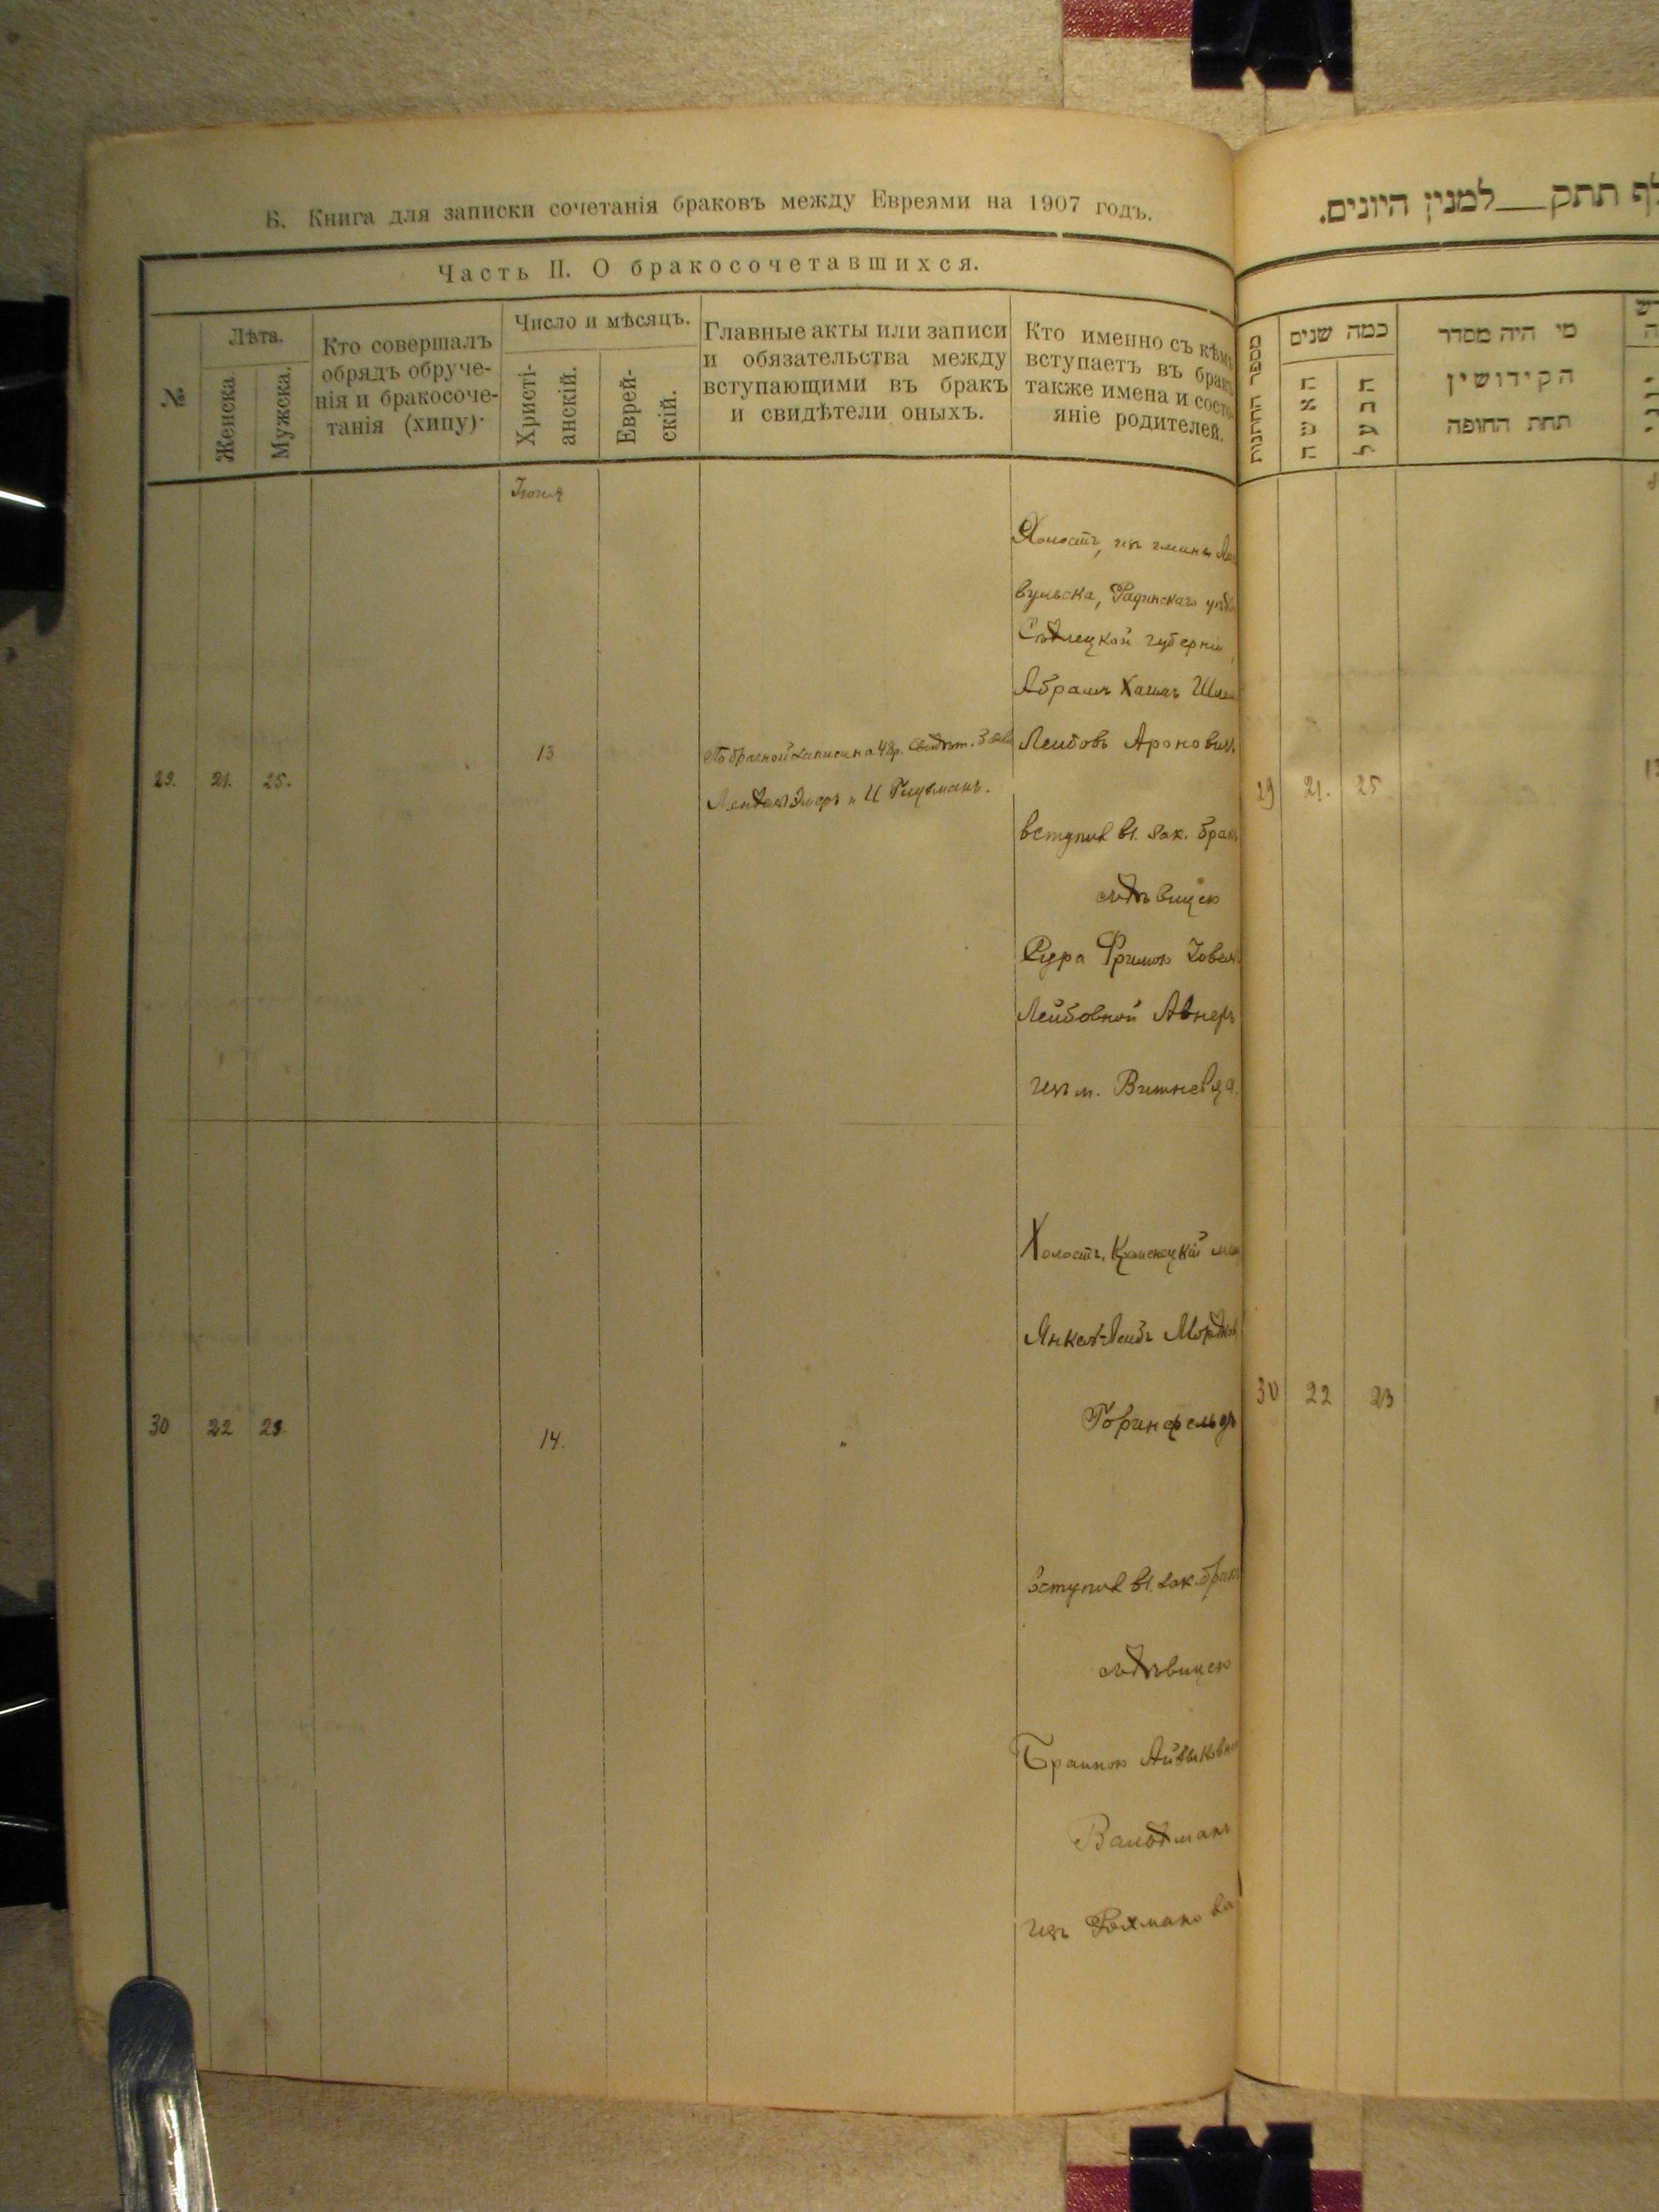 Б. Книга для записки сочетанія браковъ между Евреями на 1907 годъ.
Часть II. О бракосочетавшихся.
№
Лѣта.
Женска.
Мужска.
Кто совершалъ
обрядъ обруче-
нія и бракосоче-
танія (хипу)
Число и мѣсяцъ.
Христі-
анскій.
Еврей-
скій.
Главные акты или записи
и обязательства между
вступающими въ бракъ
и свидѣтели оныхъ.
Кто именно съ кѣмъ
вступаетъ въ бракъ
также имена и состо-
яніе родителей.
Іюня
29. 21. 25.
13
Холостъ, изъ гмины
вульска, Радинскаго
Сѣдлецкой губерніи
Абрамъ Хаимъ
Лейбовъ Аронович
вступил въ зак. бракъ
съ дѣвицею
Сура Фримою
Лейбовной Авнеръ
изъ м. Вишневца
30 22 23.
14.
"
Холостъ, Кременецкій
Янкель-Лейбъ
Горинфельдъ
вступил въ зак. бракъ
съ дѣвицею
Браиною Айзиковной
Вальдманъ
изъ Рохманова
לף תתק__למנין היונים.
מספר החתנות
כמה שנים
האשה
הבעל
מי היה מסדר
הקידושין
תחת החופה
29 21. 25
30 22 23